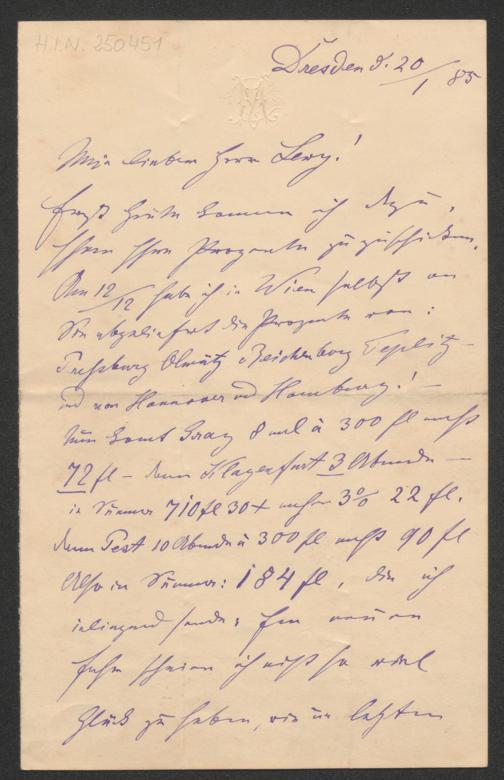 H.I.N. 250451
Dresden d. 20/1 85
Mein lieber Herr Lewy!
Erst heute komme ich dazu,
Ihnen Ihre Prozente zu zuschicken.
Am 12/12 habe ich in Wien selbst an
Sie abgeliefert die Prozente von:
Pressburg Olmütz Reichenberg Teplitz –
und von Hannover und Hamburg! –
Nun kommt Graz 8 mal à 300 fl macht
72 fl – dann Klagenfurt 3 Abende –
in Summa 710 fl 30 x macht 3% 22 fl.
dann Pest 10 Abende à 300 fl macht 90 fl
Also in Summa: 184 fl, die ich
inliegend sende: Im neuen
Jahr scheine ich nicht so viel
Glück zu haben, wie im letzten